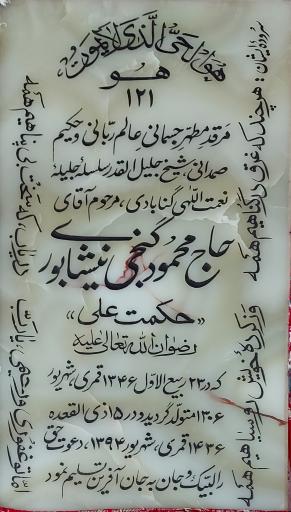 هو الحی الذی لا یموت
هو
۱۲۱
مرقد مطهر جسمانی عالم ربانی و حکیم
صمدانی، شیخ جلیل القدر سلسله جلیله
نعمت اللهی گنابادی، مرحوم آقای
حاج محمود گنجی نیشابوری
«حکمت علی»
رضوان الله تعالی علیه
که در ۲۳ ربیع الاول ۱۳۴۶ قمری، شهریور
۱۳۰۶ متولد گردید و در ۱۵ ذی القعده
۱۴۳۶ قمری، شهریور ۱۳۹۴، دعوت حق
را لبیک و جان به جان آفرین تسلیم نمود
سروده ایشان:
هر چند که غرق در گناهیم همه
وز کرده خویش روسیاهیم همه
دریاب، که سخت بی پناهیم همه
اما تو غفوری و رحیمی، یا رب